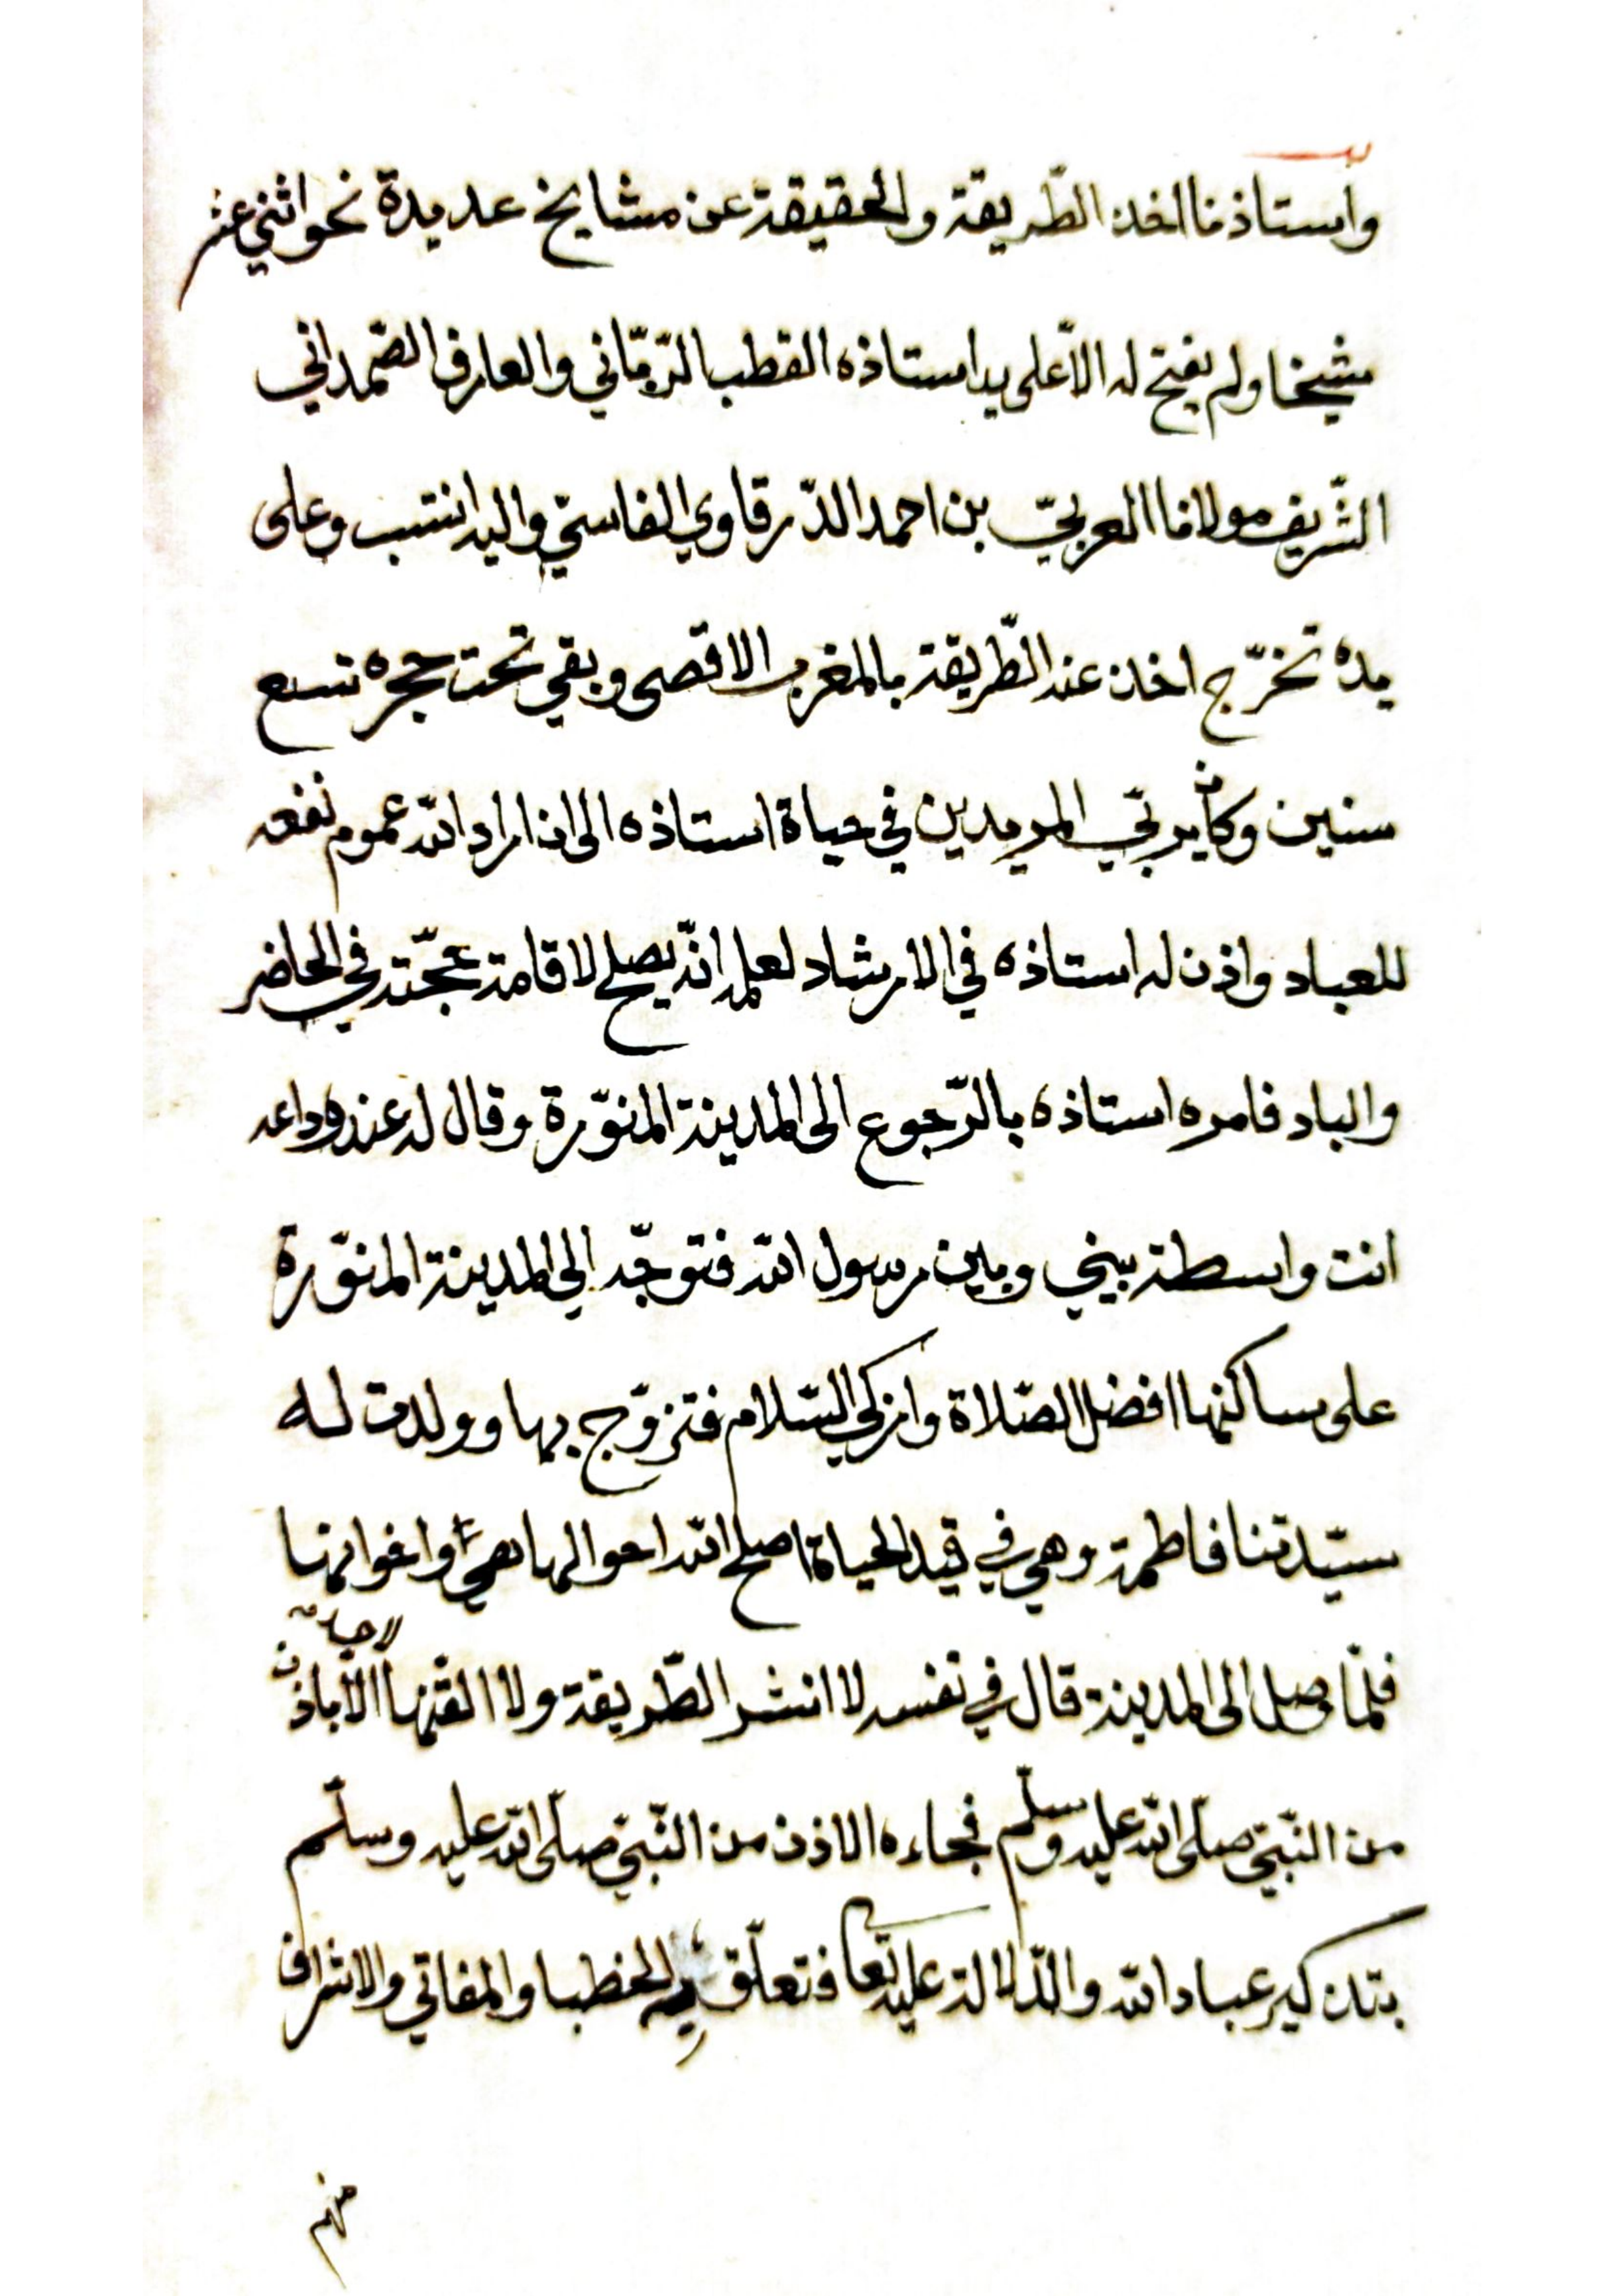 واستاذنا اخذ الطّريقة والحقيقة عن مشايخ عديدة نحو اثني عشر
شيخا ولم يفتح له الاّ على يد استاذه القطب الرّبّاني والعارف الصّمداني
الشّريف مولانا العربيّ بن احمد الدّرقاوي الفاسيّ واليه انتسب وعلى
يده تخرّج اخذ عنه الطّريقة بالمغرب الاقصى وبقي تحت حجره تسع
سنين وكان يربّي المريدين في حياة استاذه الى ان اراد الله عموم نفعه
للعباد واذن له استاذه في الارشاد لعلمه انّه يصلح لاقامة حجّته في الحاضر
والباد فامره استاذه بالرّجوع الى المدينة المنوّرة وقال له عند وداعه
انت واسطة بيني وبين رسول الله فتوجّه الى المدينة المنوّرة
على ساكنها افضل الصّلاة وازكى السّلام فتزوّج بها وولدت له
سيّدتنا فاطمة وهي في قيد الحياة اصلح الله احوالها واخوانها
لاحد
فلمّا وصل الى المدينة قال في نفسه لا انشر الطّريقة ولا القّنها الاّ باذن
من النّبيّ صلّى الله عليه وسلّم فجاءه الاذن من النّبيّ صلّى الله عليه وسلّم
بتذكير عباد الله والدّلالة عليه تعا فتعلّق به الخطبا والمفاتي والاشراف
منهم